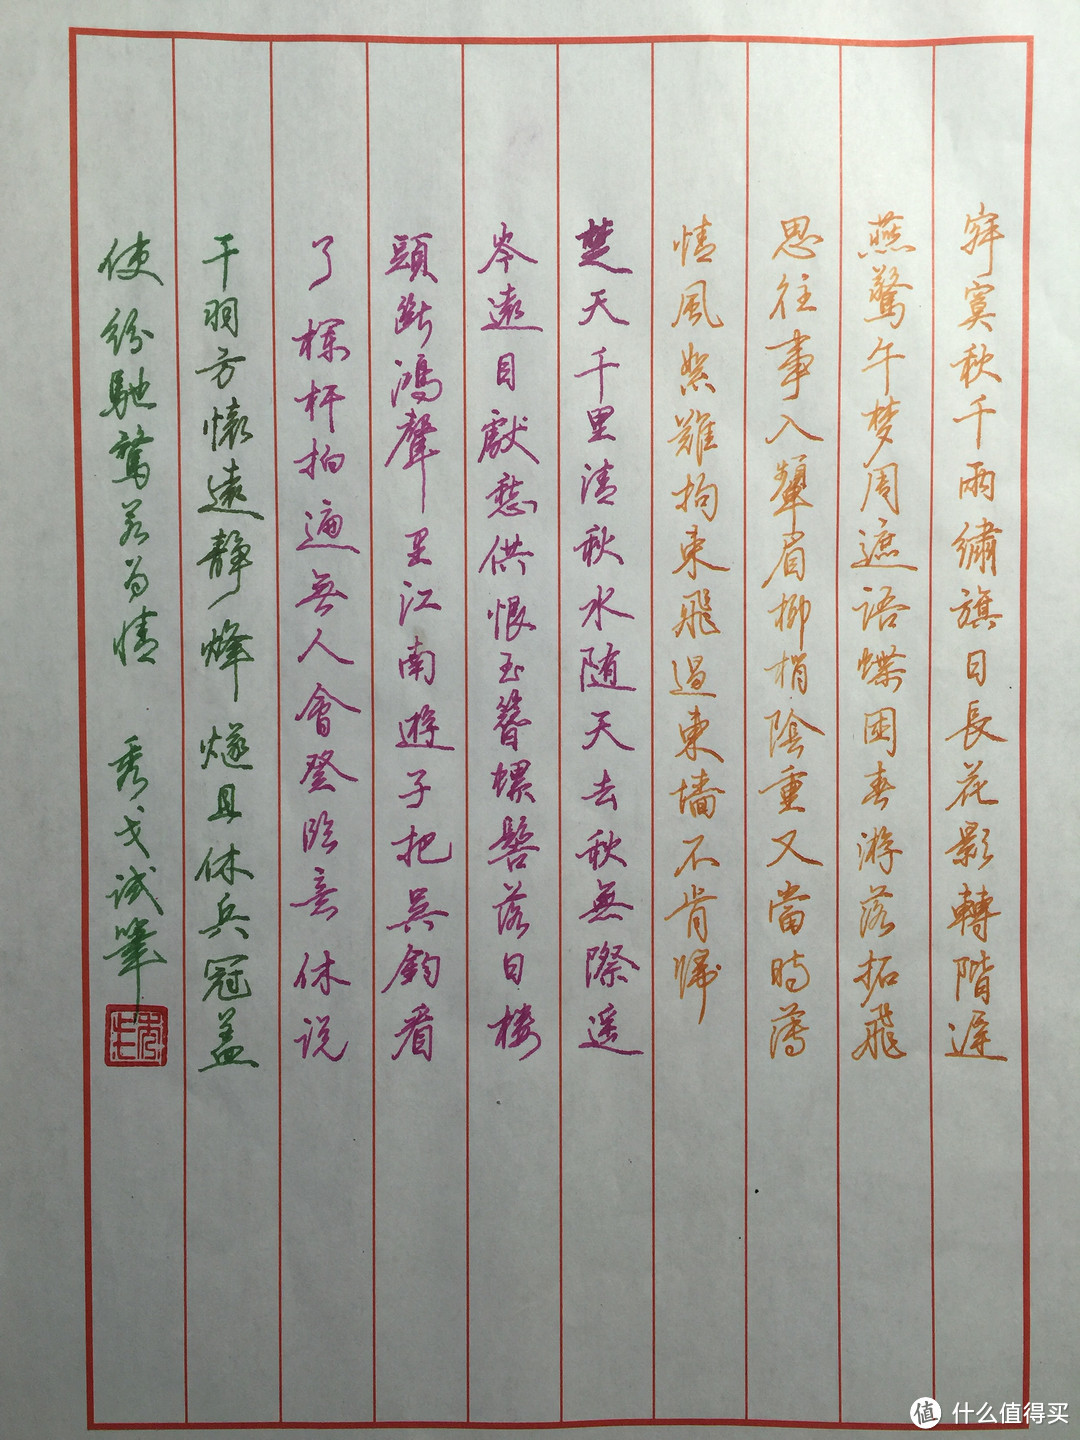 寂寞秋千兩繡旗日長花影轉階遲
燕驚午梦周遮语蝶困春游落拓飛
思往事入顰眉柳梢陰重又當時薄
情風絮難拘束飛過東墻不肯歸
楚天千里清秋水随天去秋無際遥
岑遠目獻愁供恨玉簪螺髻落日楼
頭斷鴻聲里江南遊子把吴鈎看
了欄杆拍遍無人會登臨意休说
干羽方懷遠靜烽燧且休兵冠盖
使纷馳騖若为情 秀戈试筆
值 什么值得买